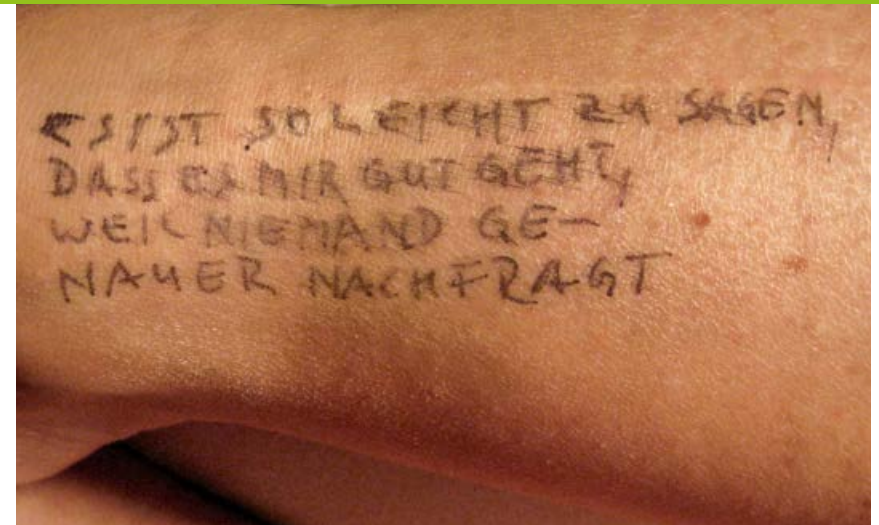 ES IST SO LEICHT ZU SAGEN,
DASS ES MIR GUT GEHT,
WEIL NIEMAND GE-
NAUER NACHFRAGT